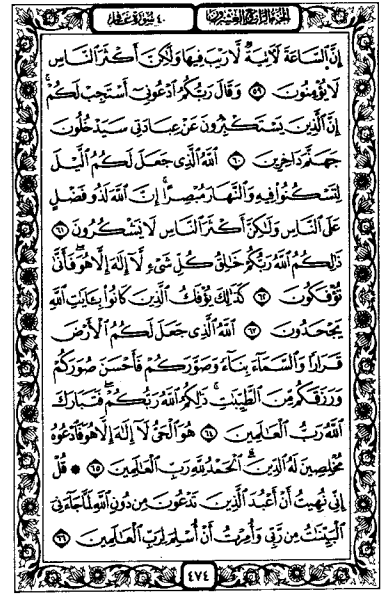 الجزء الرابع والعشرون
٤٠ سورة غافر
إِنَّ ٱلسَّاعَةَ لَـَٔاتِيَةٌ لَّا رَيْبَ فِيهَا وَلَـٰكِنَّ أَكْثَرَ ٱلنَّاسِ
لَا يُؤْمِنُونَ ٥٩ وَقَالَ رَبُّكُمُ ٱدْعُونِىٓ أَسْتَجِبْ لَكُمْ ۚ
إِنَّ ٱلَّذِينَ يَسْتَكْبِرُونَ عَنْ عِبَادَتِى سَيَدْخُلُونَ
جَهَنَّمَ دَاخِرِينَ ٦٠ ٱللَّهُ ٱلَّذِى جَعَلَ لَكُمُ ٱلَّيْلَ
لِتَسْكُنُوا۟ فِيهِ وَٱلنَّهَارَ مُبْصِرًا ۚ إِنَّ ٱللَّهَ لَذُو فَضْلٍ
عَلَى ٱلنَّاسِ وَلَـٰكِنَّ أَكْثَرَ ٱلنَّاسِ لَا يَشْكُرُونَ ٦١
ذَٰلِكُمُ ٱللَّهُ رَبُّكُمْ خَـٰلِقُ كُلِّ شَىْءٍ لَّآ إِلَـٰهَ إِلَّا هُوَ ۖ فَأَنَّىٰ
تُؤْفَكُونَ ٦٢ كَذَٰلِكَ يُؤْفَكُ ٱلَّذِينَ كَانُوا۟ بِـَٔايَـٰتِ ٱللَّهِ
يَجْحَدُونَ ٦٣ ٱللَّهُ ٱلَّذِى جَعَلَ لَكُمُ ٱلْأَرْضَ
قَرَارًا وَٱلسَّمَآءَ بِنَآءً وَصَوَّرَكُمْ فَأَحْسَنَ صُوَرَكُمْ
وَرَزَقَكُم مِّنَ ٱلطَّيِّبَـٰتِ ۚ ذَٰلِكُمُ ٱللَّهُ رَبُّكُمْ ۖ فَتَبَارَكَ
ٱللَّهُ رَبُّ ٱلْعَـٰلَمِينَ ٦٤ هُوَ ٱلْحَىُّ لَآ إِلَـٰهَ إِلَّا هُوَ فَٱدْعُوهُ
مُخْلِصِينَ لَهُ ٱلدِّينَ ۗ ٱلْحَمْدُ لِلَّهِ رَبِّ ٱلْعَـٰلَمِينَ ٦٥ ۞ قُلْ
إِنِّى نُهِيتُ أَنْ أَعْبُدَ ٱلَّذِينَ تَدْعُونَ مِن دُونِ ٱللَّهِ لَمَّا جَآءَنِىَ
ٱلْبَيِّنَـٰتُ مِن رَّبِّى وَأُمِرْتُ أَنْ أُسْلِمَ لِرَبِّ ٱلْعَـٰلَمِينَ ٦٦
٤٧٤